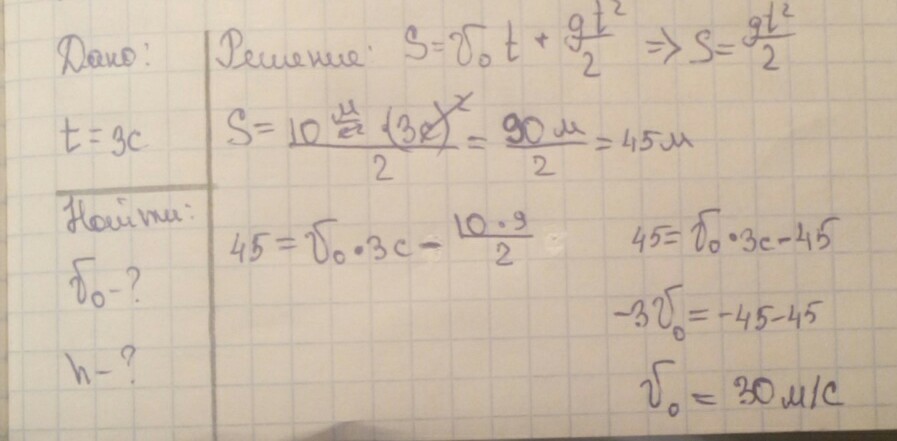 Дано:
t = 3с
Найти:
v₀ - ?
h - ?
Решение: S = v₀t + gt²/2 => S = gt²/2
S = 10 м/с² · (3с)²/2 = 90 м/2 = 45 м
45 = v₀ · 3с - 10 · 9/2
45 = v₀ · 3с - 45
-3v₀ = -45 - 45
v₀ = 30 м/с